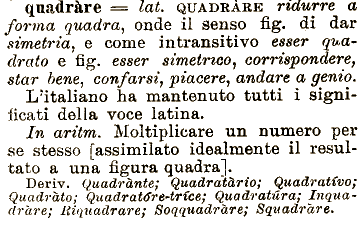 quadràre = lat. QUADRÀRE ridurre a
forma quadra, onde il senso fig. di dar
simetria, e come intransitivo esser qua-
drato e fig. esser simetrico, corrispondere,
star bene, confarsi, piacere, andare a genio.
L'italiano ha mantenuto tutti i signi-
ficati della voce latina.
In aritm. Moltiplicare un numero per
se stesso [assimilato idealmente il resul-
tato a una figura quadra].
Deriv. Quadrànte; Quadratàrio; Quadratívo;
Quadràto; Quadratóre-tríce; Quadratúra; Inqua-
dràre; Riquadrare; Soqquadràre; Squadràre.